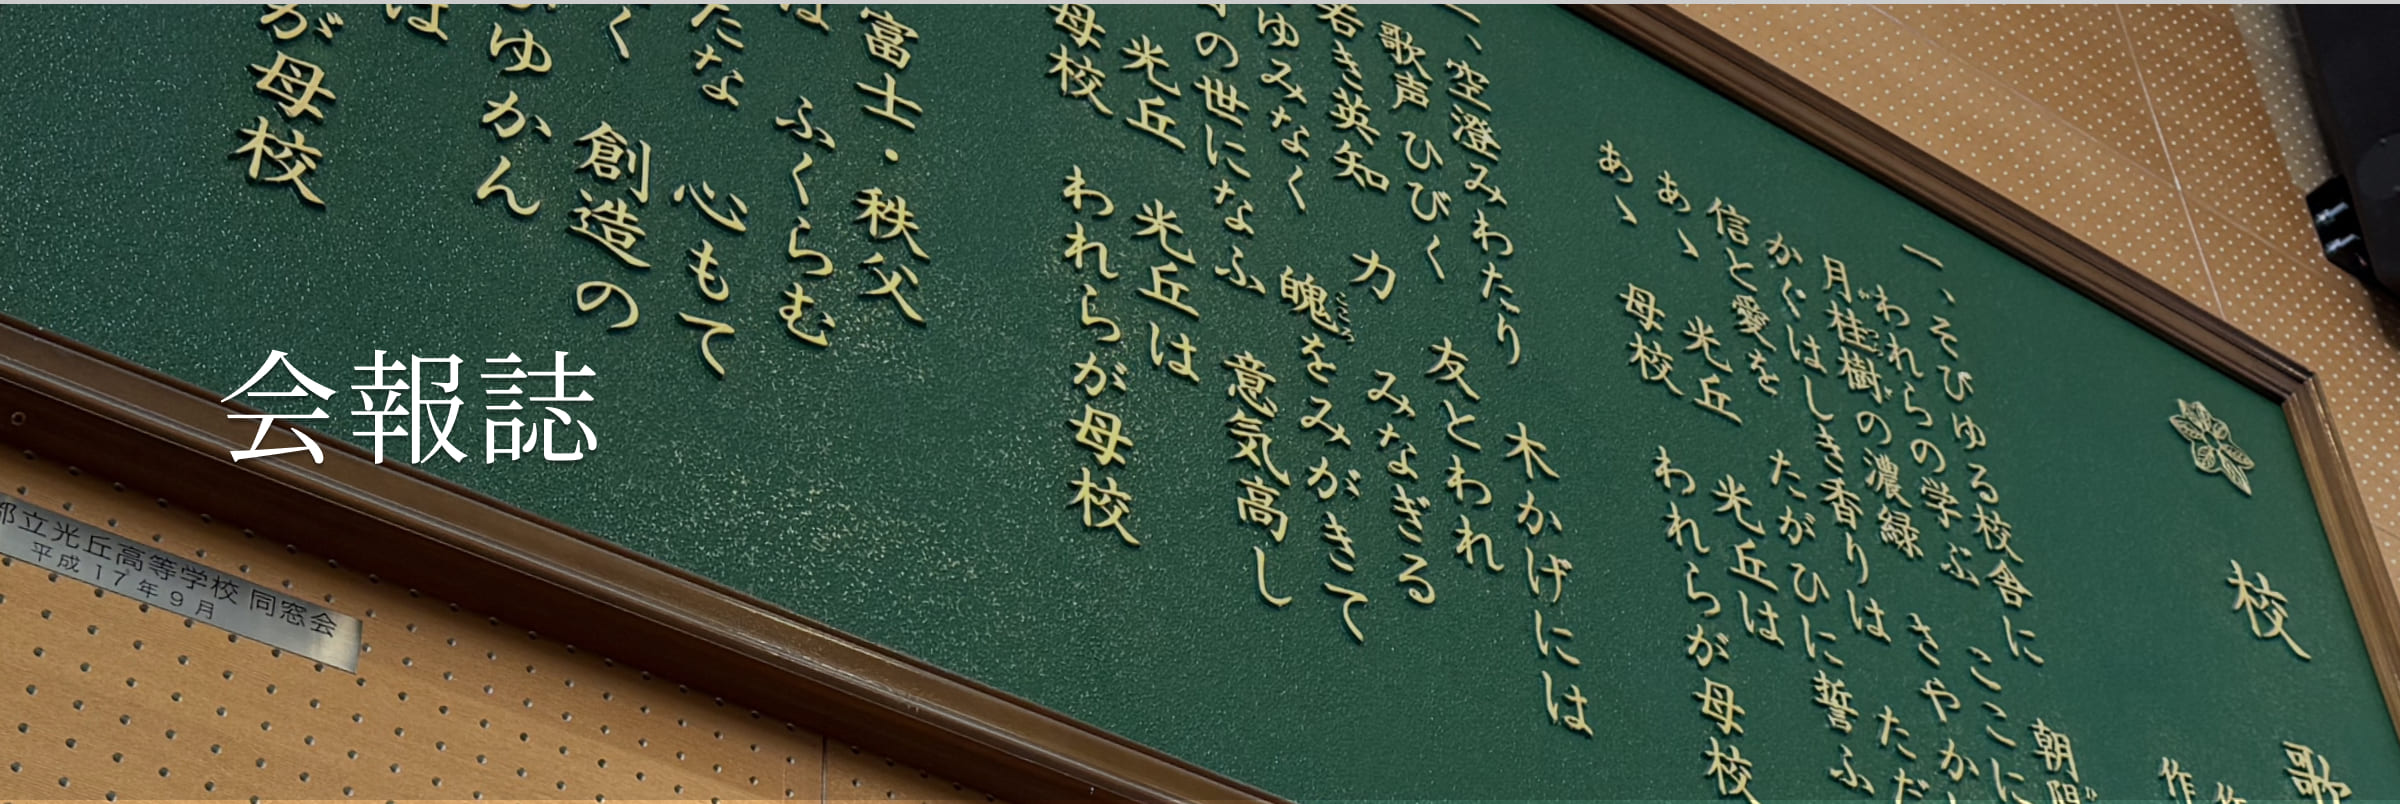 校歌
一、そびゆる校舎に 朝陽
われらの学ぶ ここに
月桂樹の濃緑 さやか
かぐはしき香りは ただ
信と愛を たがひに誓ふ
あゝ 光丘 光丘は
あゝ 母校 われらが母校
一、空澄みわたり 木かげには
歌声 ひびく 友とわれ
若き英知 力 みなぎる
ゆみなく 魄をみがきて
の世になふ 意気高し
光丘 光丘は
母校 われらが母校
富士・秩父
は ふくらむ
たな 心もて
く 創造の
ゆかん
は
が母校
会報誌
都立光丘高等学校 同窓会
平成17年9月